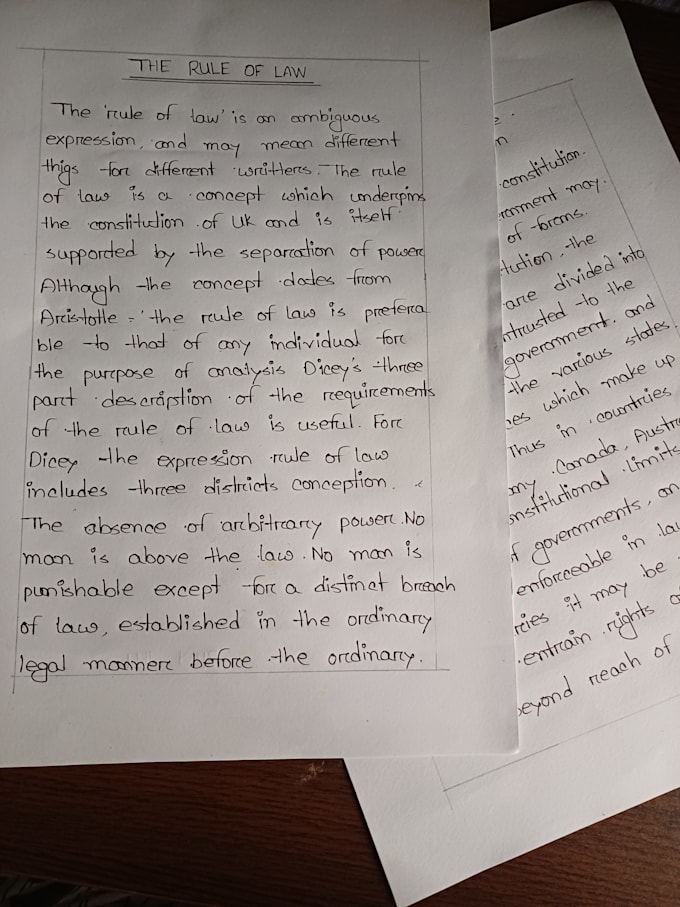 THE RULE OF LAW
The 'rule of law' is an ambiguous
expression, and may mean different
thigs for different writters. The rule
of law is a concept which underpins
the constitution of UK and is itself
supported by the separation of power
Although the concept dates from
Aristotle - 'the rule of law is prefera
ble to that of any individual for
the purpose of analysis Dicey's three
part description of the requirements
of the rule of law is useful. For
Dicey the expression rule of law
includes three districts conception.
The absence of arbitrary power. No
man is above the law. No man is
punishable except for a distinct breach
of law, established in the ordinary
legal manner before the ordinary.
constitution.
ernment may.
of forms.
tution, the
are divided into
ntrusted to the
government. and
the various states.
es which make up
Thus in countries
my Canada, Austra
nstitutional limits
f governments, an
enforceable in la
ries it may be
entrain rights o
beyond reach of